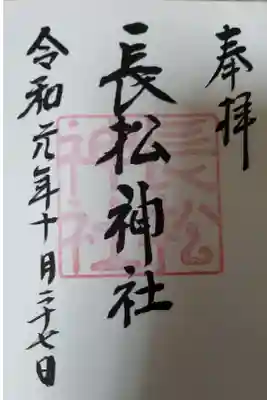 奉拝
長松神社
令和元年十月二十七日
長松
神社